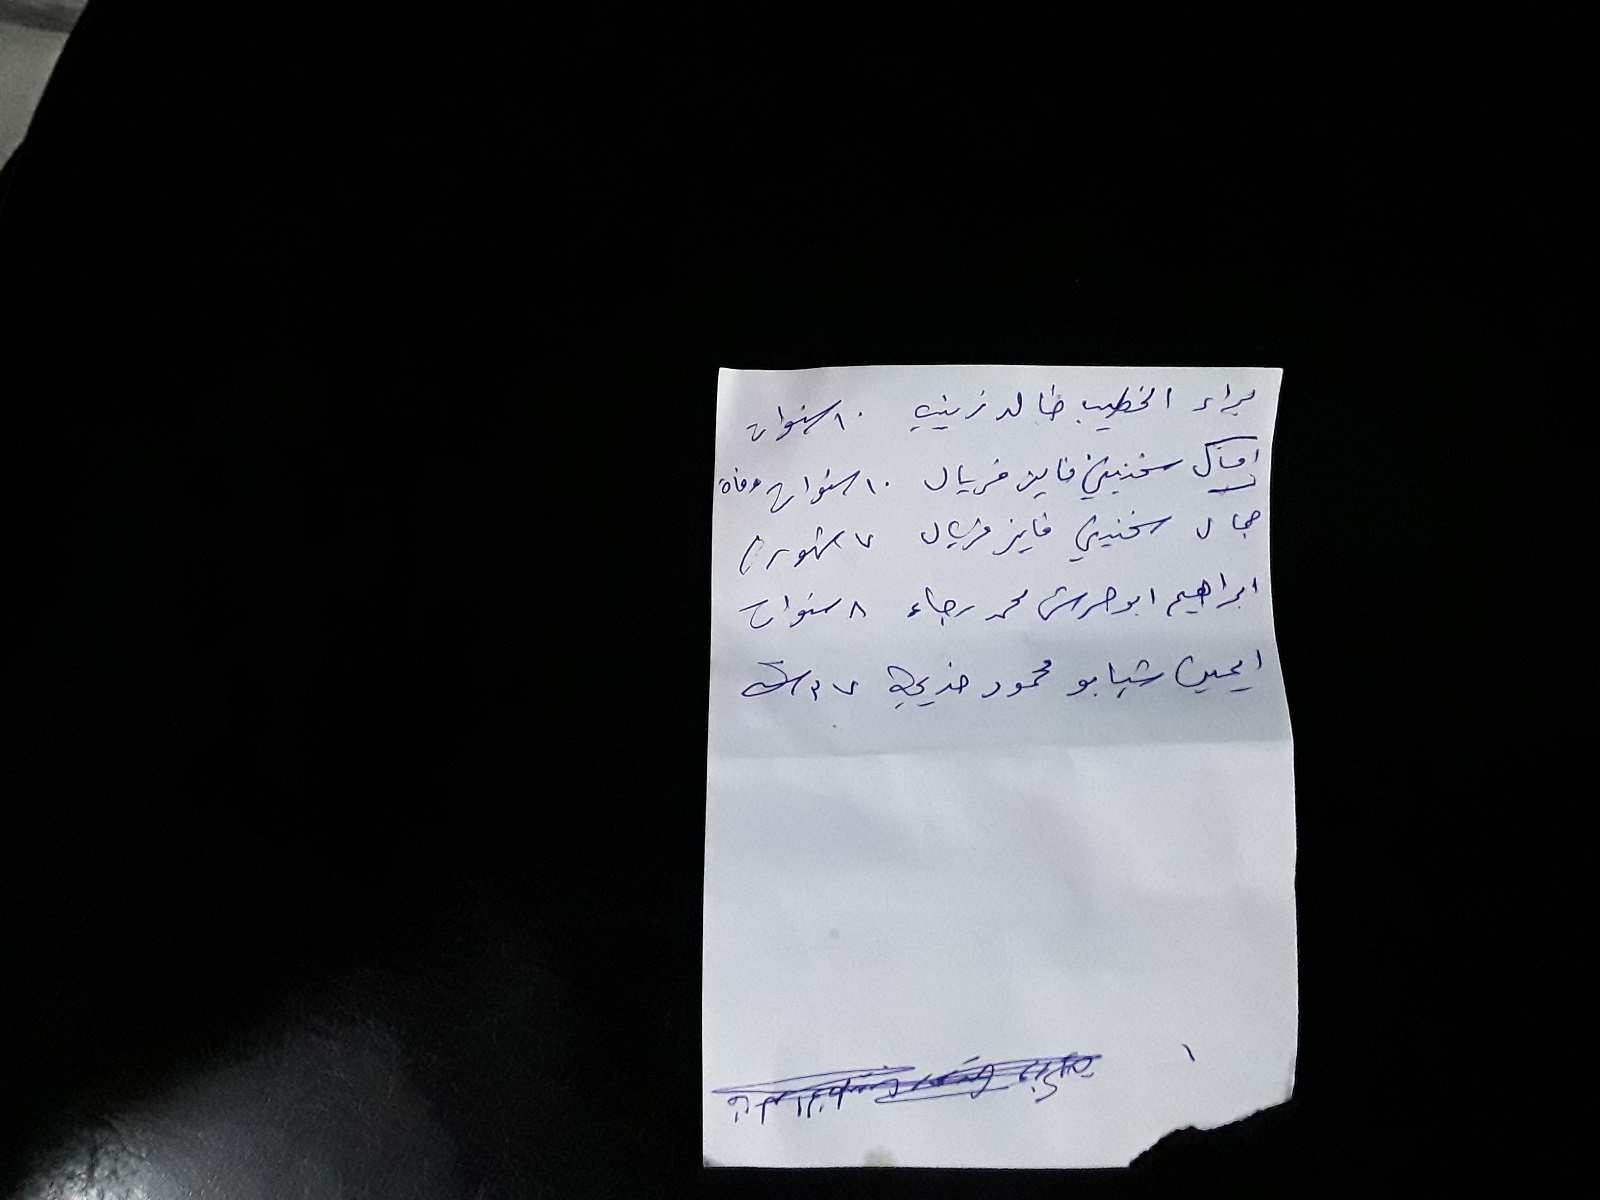 براء الخطيب خالد زينب ١٠ سنوات
سخنيني فايز فريال ١٠ سنوات وفاة
جمال سخنيني فايز فريال ٧ شهور
ابراهيم ابو حرش محمد رجاء ٨ سنوات
ايمين شبابو محمود خديجة ٣٧ سنة
١